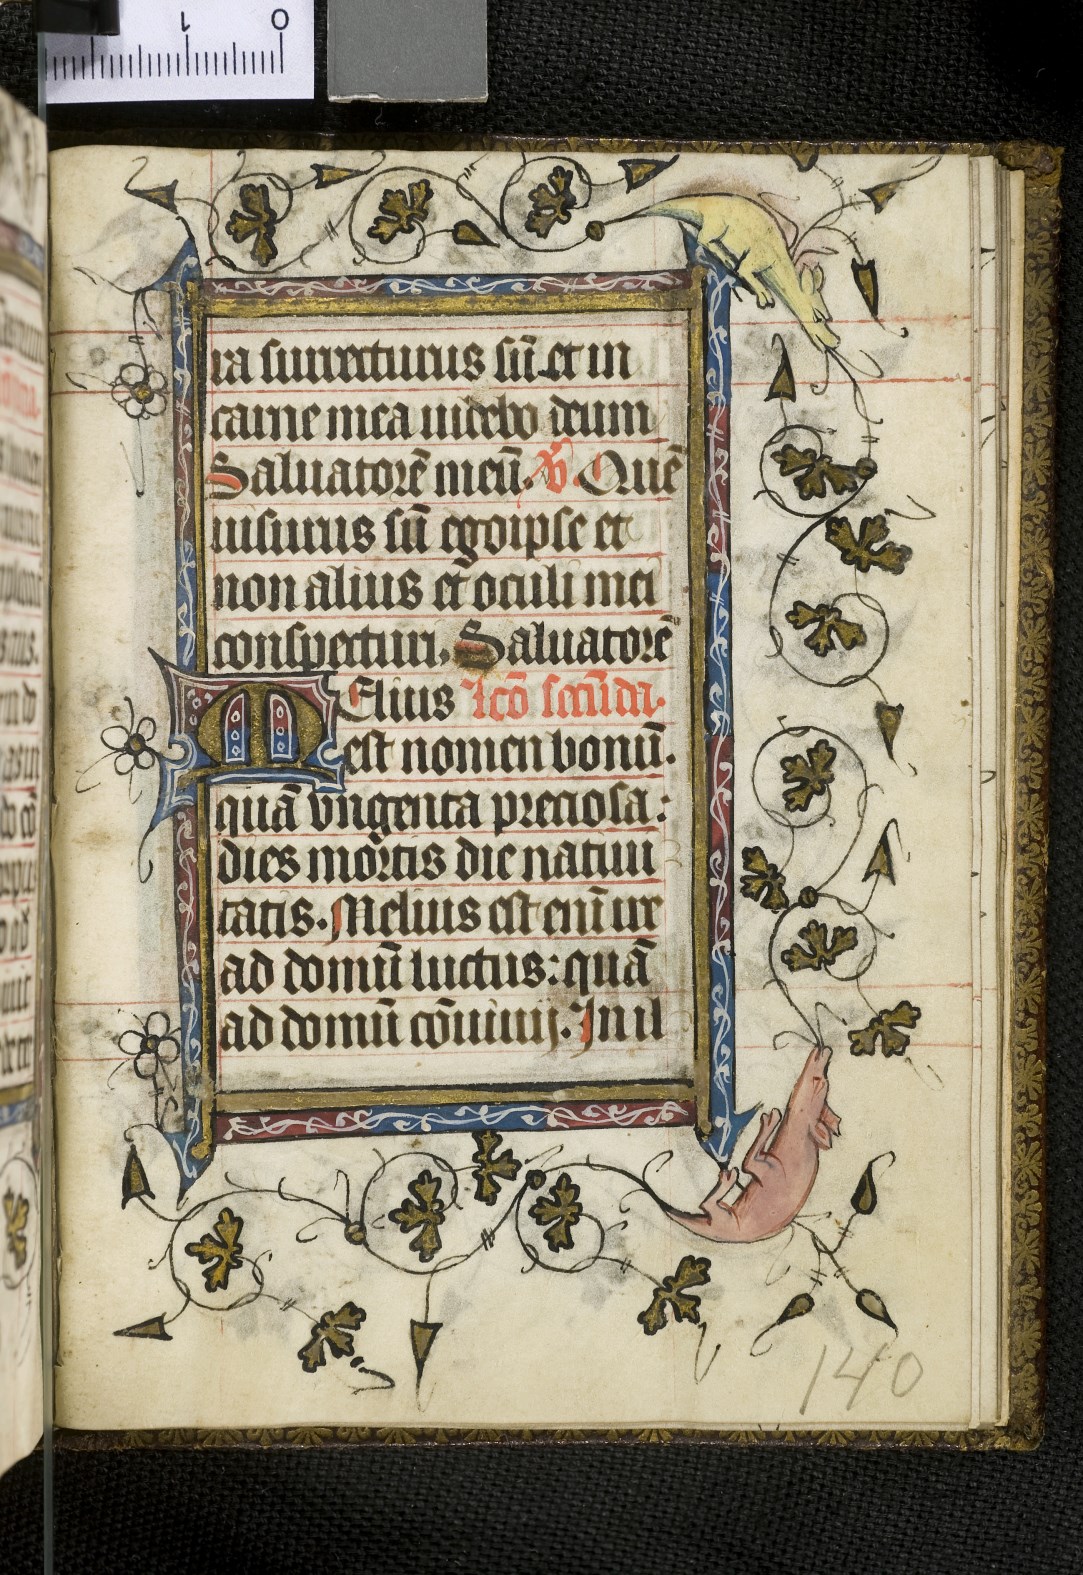 ra surrecturus sū et in
carne mea uidebo deum
Saluatorē meū. V. Quē
uisurus sū egoipse et
non alius et oculi mei
conspecturi. Saluatorē
MElius lcō secūda.
est nomen bonū.
quā vngenta preciosa:
dies mortis die natiui
tatis. Melius est enī ire
ad domū luctus: quā
ad domū cōuiuij. In il
140
0
1